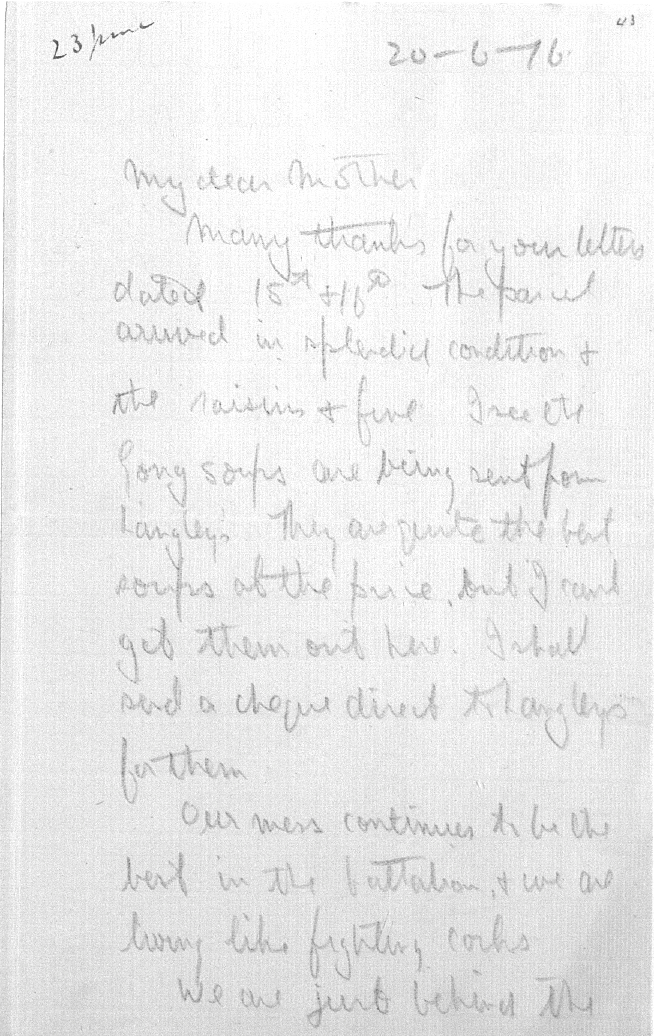 43
23 June
20-6-16
My dear Mother
Many thanks for your letters
dated 15th + 16th The parcel
arrived in splendid condition +
the raisins + fine I see the
Gong soups are being sent from
Langleys They are quite the best
soups at the price, but I cant
get them out here. I shall
send a cheque direct to Langleys
for them
Our mess continues to be the
best in the battalion, + we are
living like fighting cocks
We are just behind the